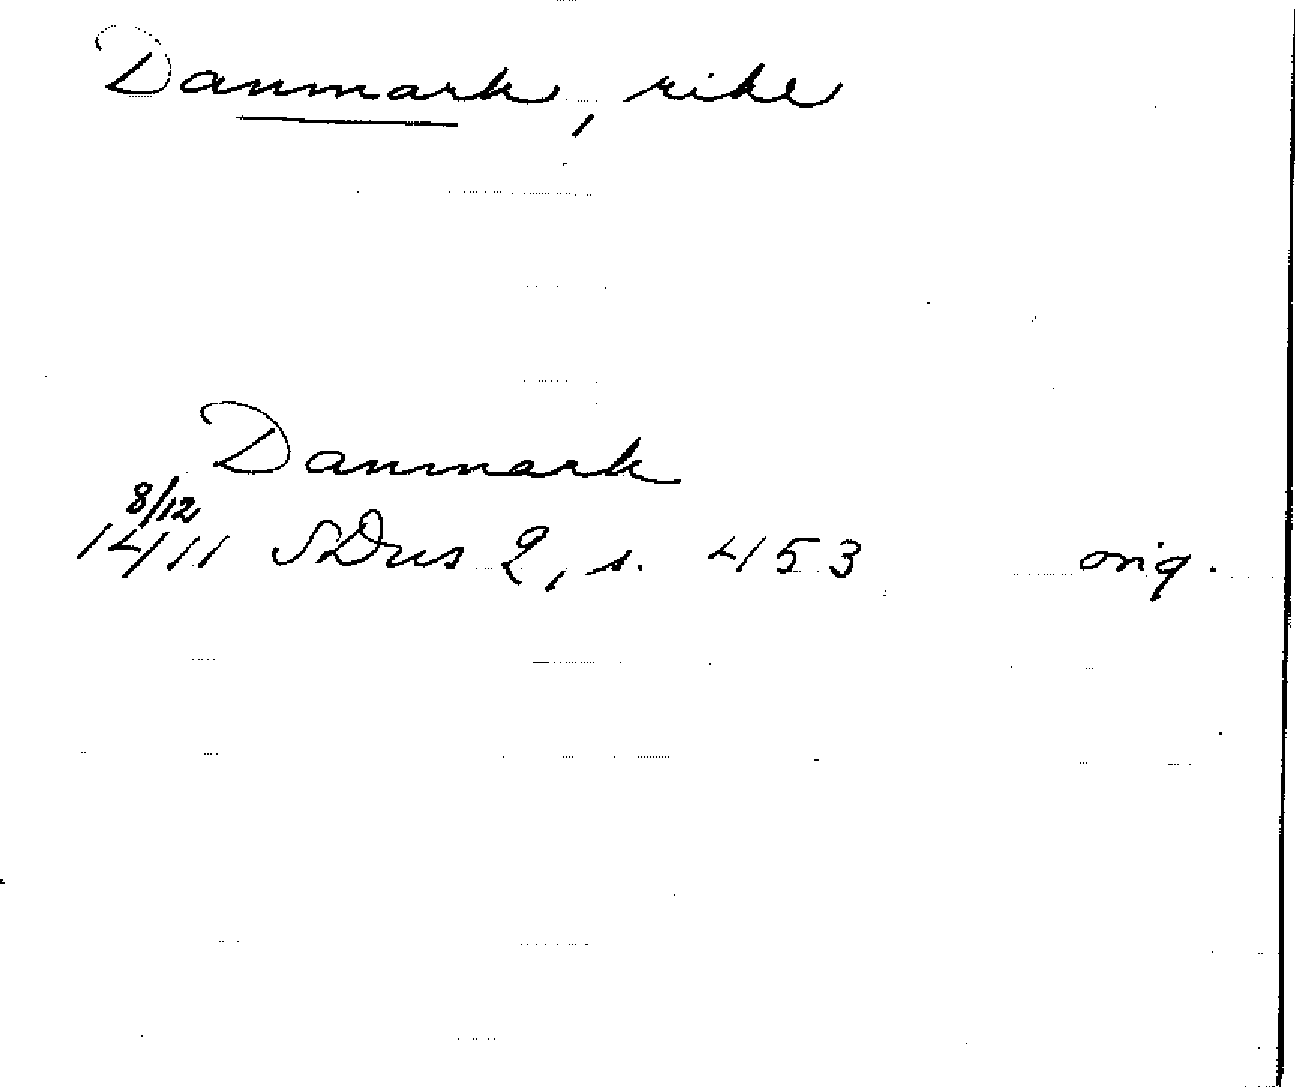 Danmark, rike
Danmark
8/12
1411 SDns 2, s. 453 orig.